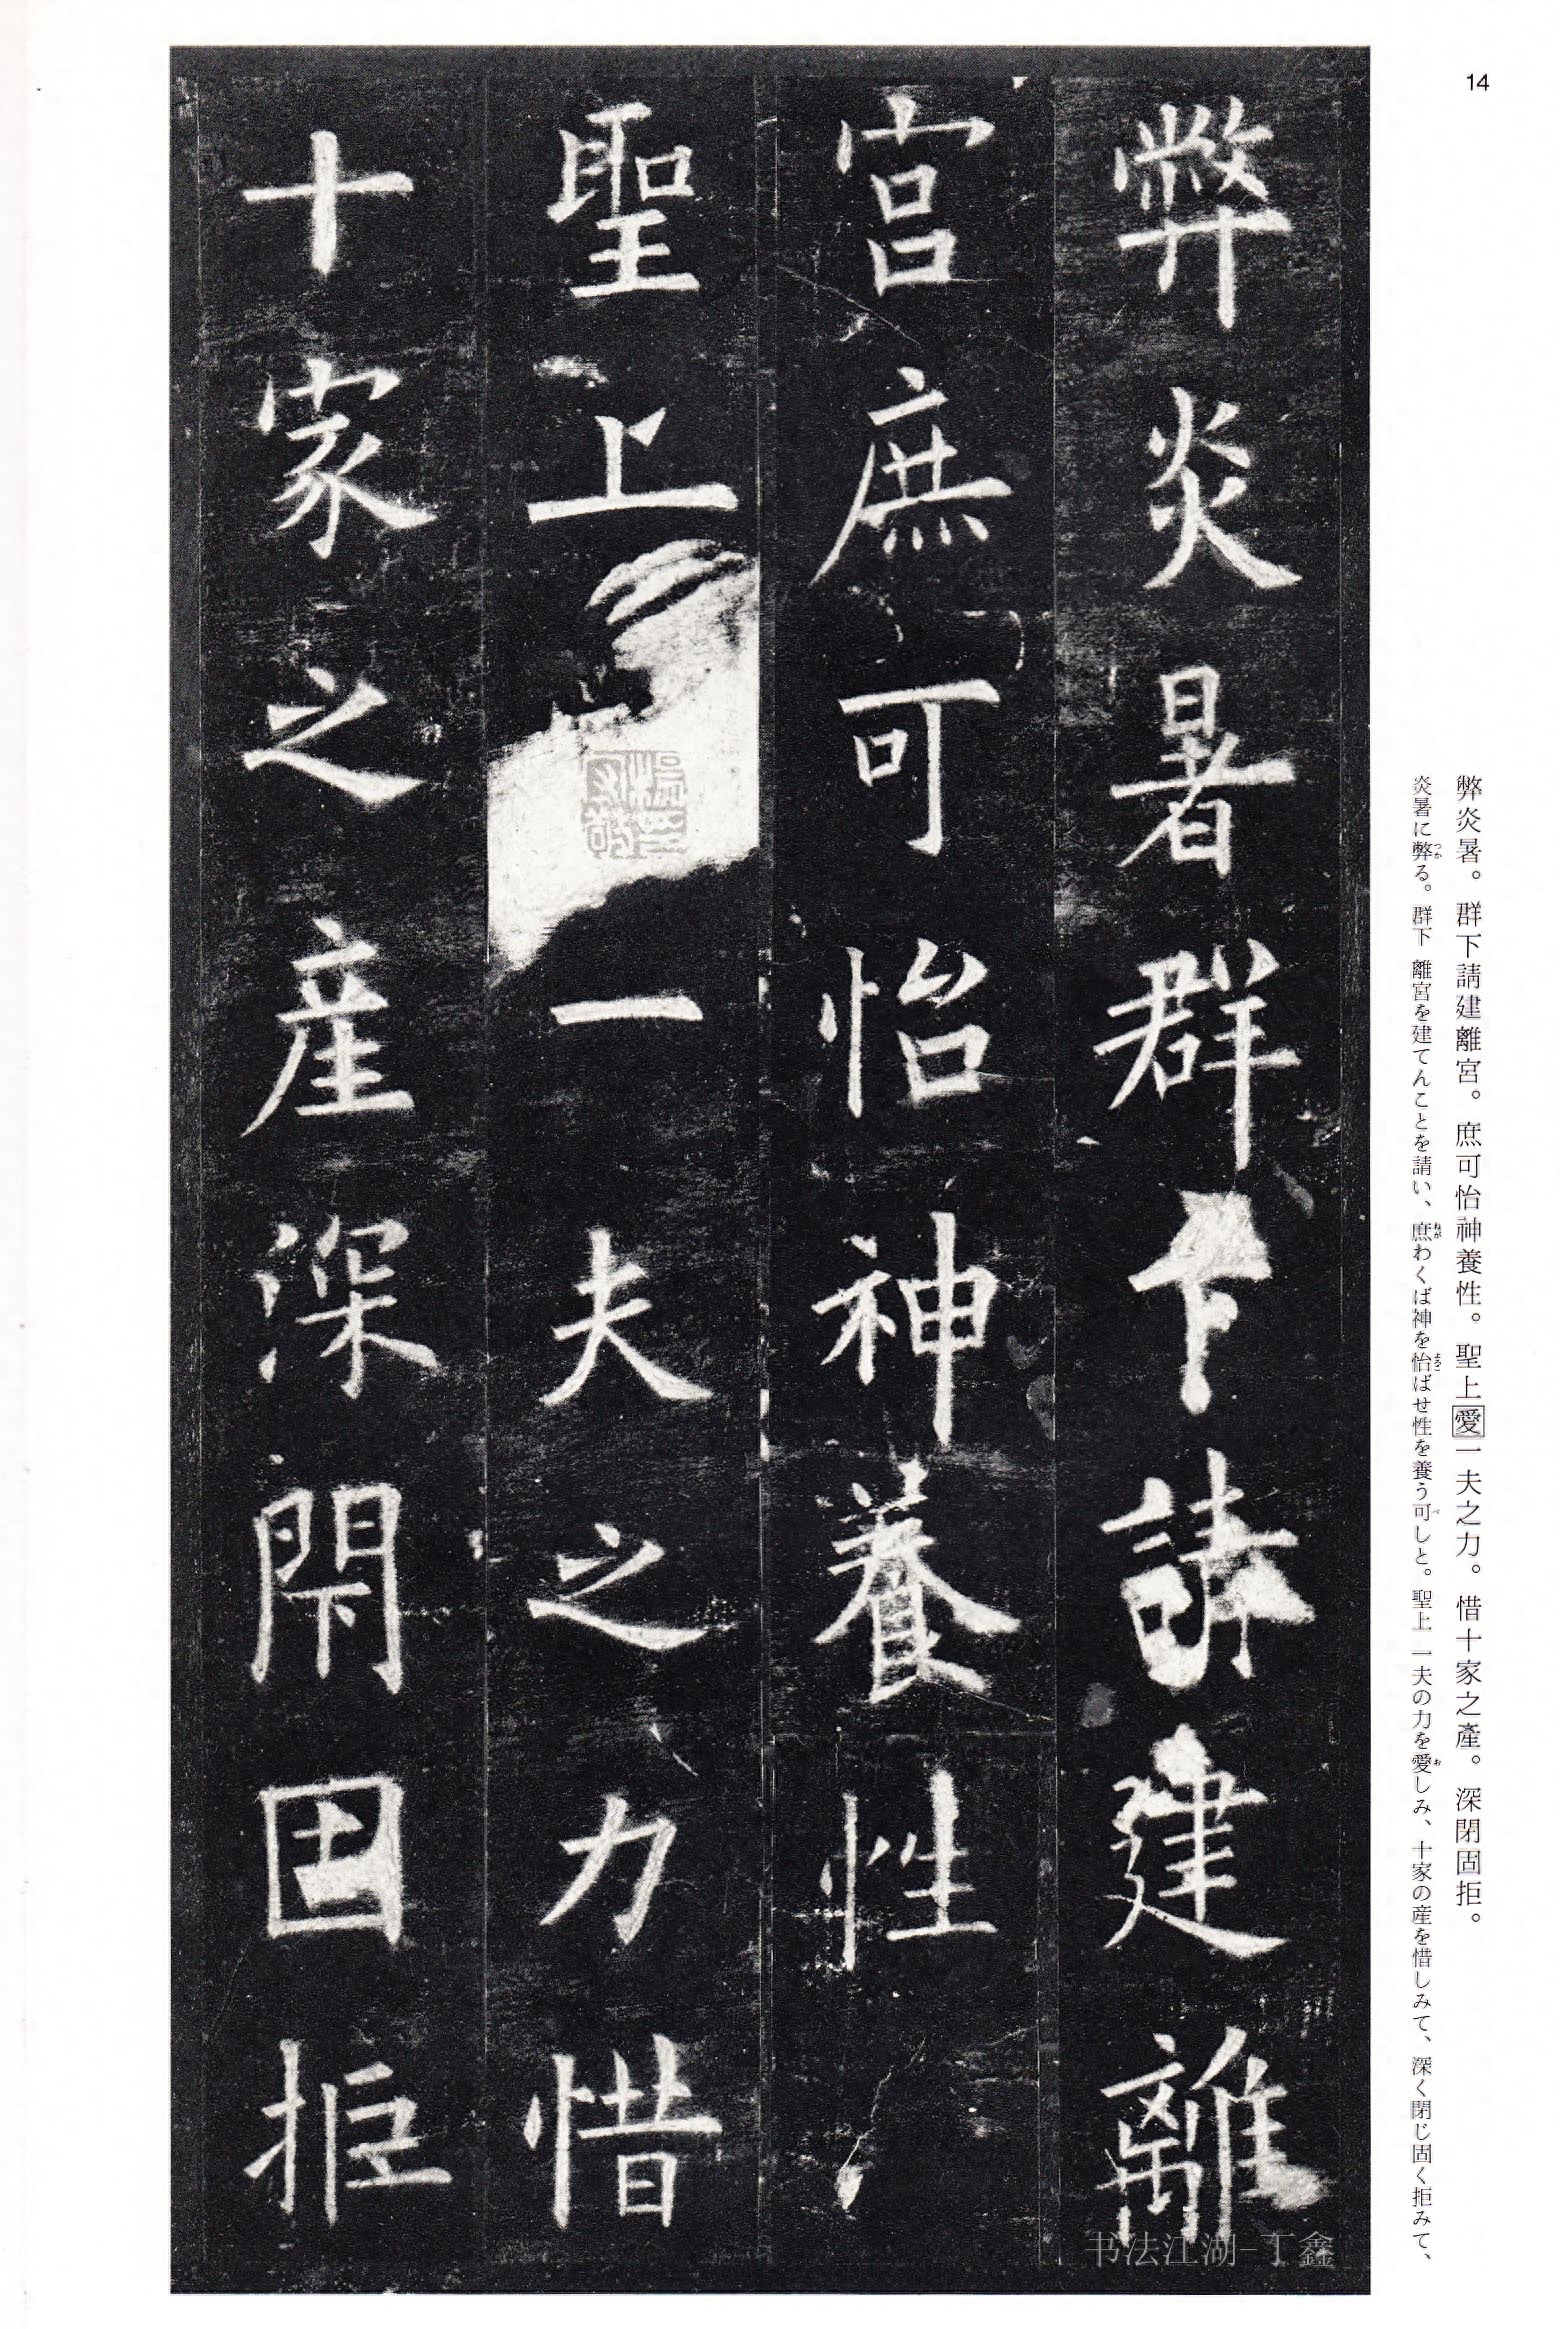 14
弊炎暑。群下請建離宮。庶可怡神養性。聖上愛一夫之力。惜十家之產。深閉固拒。
炎暑に弊る。群下 離宮を建てんことを請い、庶わくば神を怡ばせ性を養う可しと。聖上 一夫の力を愛しみ、十家の産を惜しみて、深く閉じ固く拒みて、
弊炎暑群下請建離
宮庶可怡神養性
聖上一夫之力惜
十家之産深閇固拒
书法江湖-丁鑫